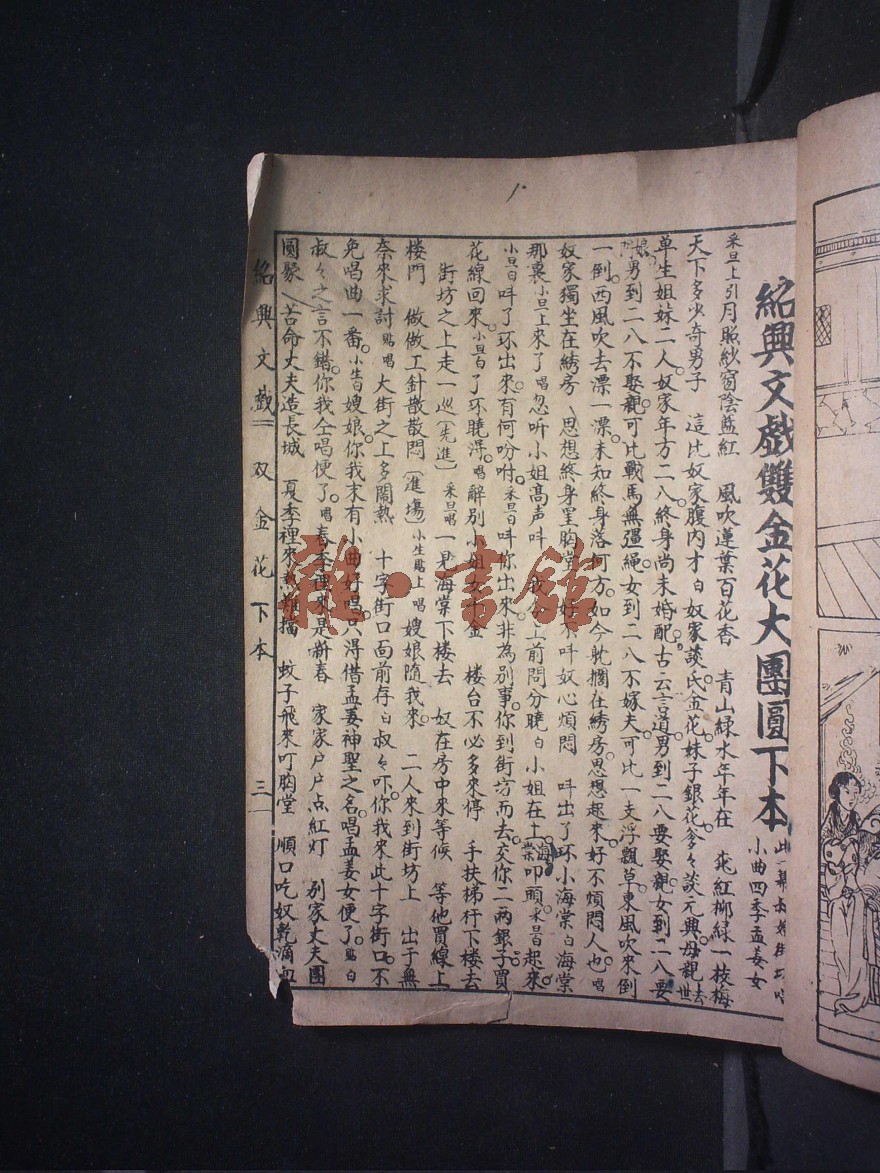 紹興文戲雙金花大團圓下本
小曲四季孟姜女
采旦上引月照紗窗陰蓝紅 風吹蓮葉百花香 青山綠水年年在 桃紅柳緑一枝梅
天下多少奇男子 這比奴家腹内才白奴家談氏金花妹子銀花爹々談元興母親去世
单生姐妹二人奴家年方二八終身尚未婚配古云言道男到二八要娶親女到二八要
男到二八不娶親可比戰馬無疆繩女到二八不嫁夫可比一支浮飄草東風吹來倒
一到西風吹去漂一漂未知終身落何方如今躭擱在綉房思想起來好不煩悶人也唱
奴家獨坐在綉房 思想終身呈胸堂 好不呌奴心煩悶 呌出了环小海棠白海棠
那裏小旦上來了唱忽听小姐髙声呌 上前問分曉白小姐在上海棠叩頭采旦白起來
小旦白呌了环出來有何吩咐采旦白呌你出來非為别事你到街坊而去交你二两銀子買
花線回來小旦白了环曉淂唱辭别小姐女千金 楼台不必多來停 手扶梯杆下楼去
街坊之上走一巡（先進）采旦唱一見海棠下楼去 奴在房中來等候 等他買線上
楼門 做做工針散散悶（進塲）小生貼上唱嫂娘隨我來 二人來到街坊上 出于無
奈來求討貼唱大街之上多鬧熱 十字街口面前存白叔々吓你我來此十字街口不
免唱曲一番小生白嫂娘你我末有小曲好唱只淂借孟姜神聖之名唱孟姜女便了貼白
叔々之言不錯你我仝唱便了唱春季裡來是新春 家家户户点紅灯 别家丈夫團
圓聚 苦命丈夫造長城 夏季裡來熱難擋 蚊子飛來叮胸堂 順口吃奴乾滴血
紹興文戲 双金花下本 三
雜·書館